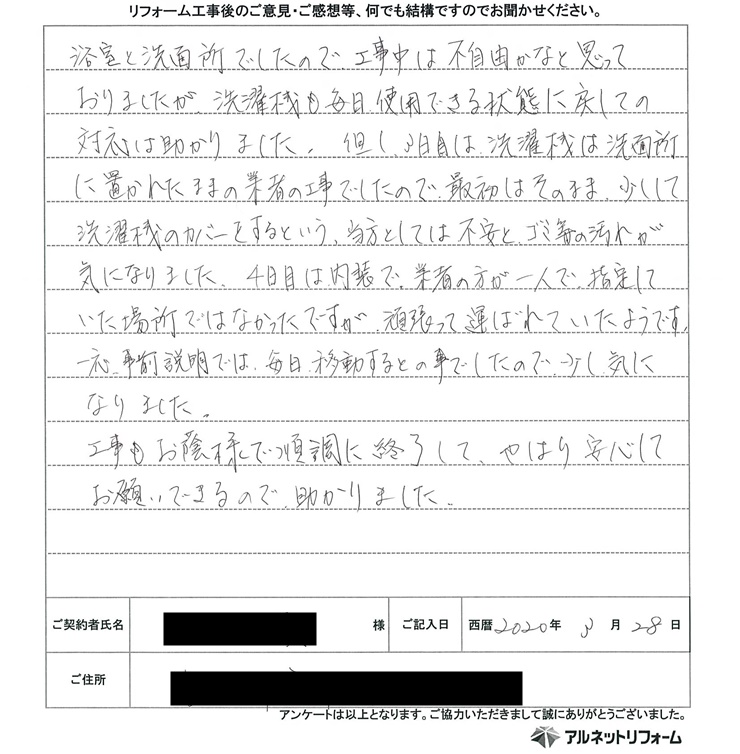 リフォーム工事後のご意見・ご感想等、何でも結構ですのでお聞かせください。
浴室と洗面所でしたので、工事中は不自由かなと思って
おりましたが、洗濯機も毎日使用できる状態に戻しての
対応は助かりました。但し、3日目は、洗濯機は洗面所
に置かれたままの業者の工事でしたので、最初はそのまま、少しして
洗濯機のカバーをするという、当方としては不安と、ゴミ等の汚れが
気になりました。4日目は内装で、業者の方が一人で、指定して
いた場所ではなかったですが、頑張って運ばれていたようです。
一応、事前説明では、毎日、移動するとの事でしたので、少し気に
なりました。
工事もお蔭様で順調に終了して、やはり安心して
お願いできるので、助かりました。
ご契約者氏名 様 ご記入日 西暦 2020年 3月 28日
ご住所
アンケートは以上となります。ご協力いただきまして誠にありがとうございました。
アルネットリフォーム